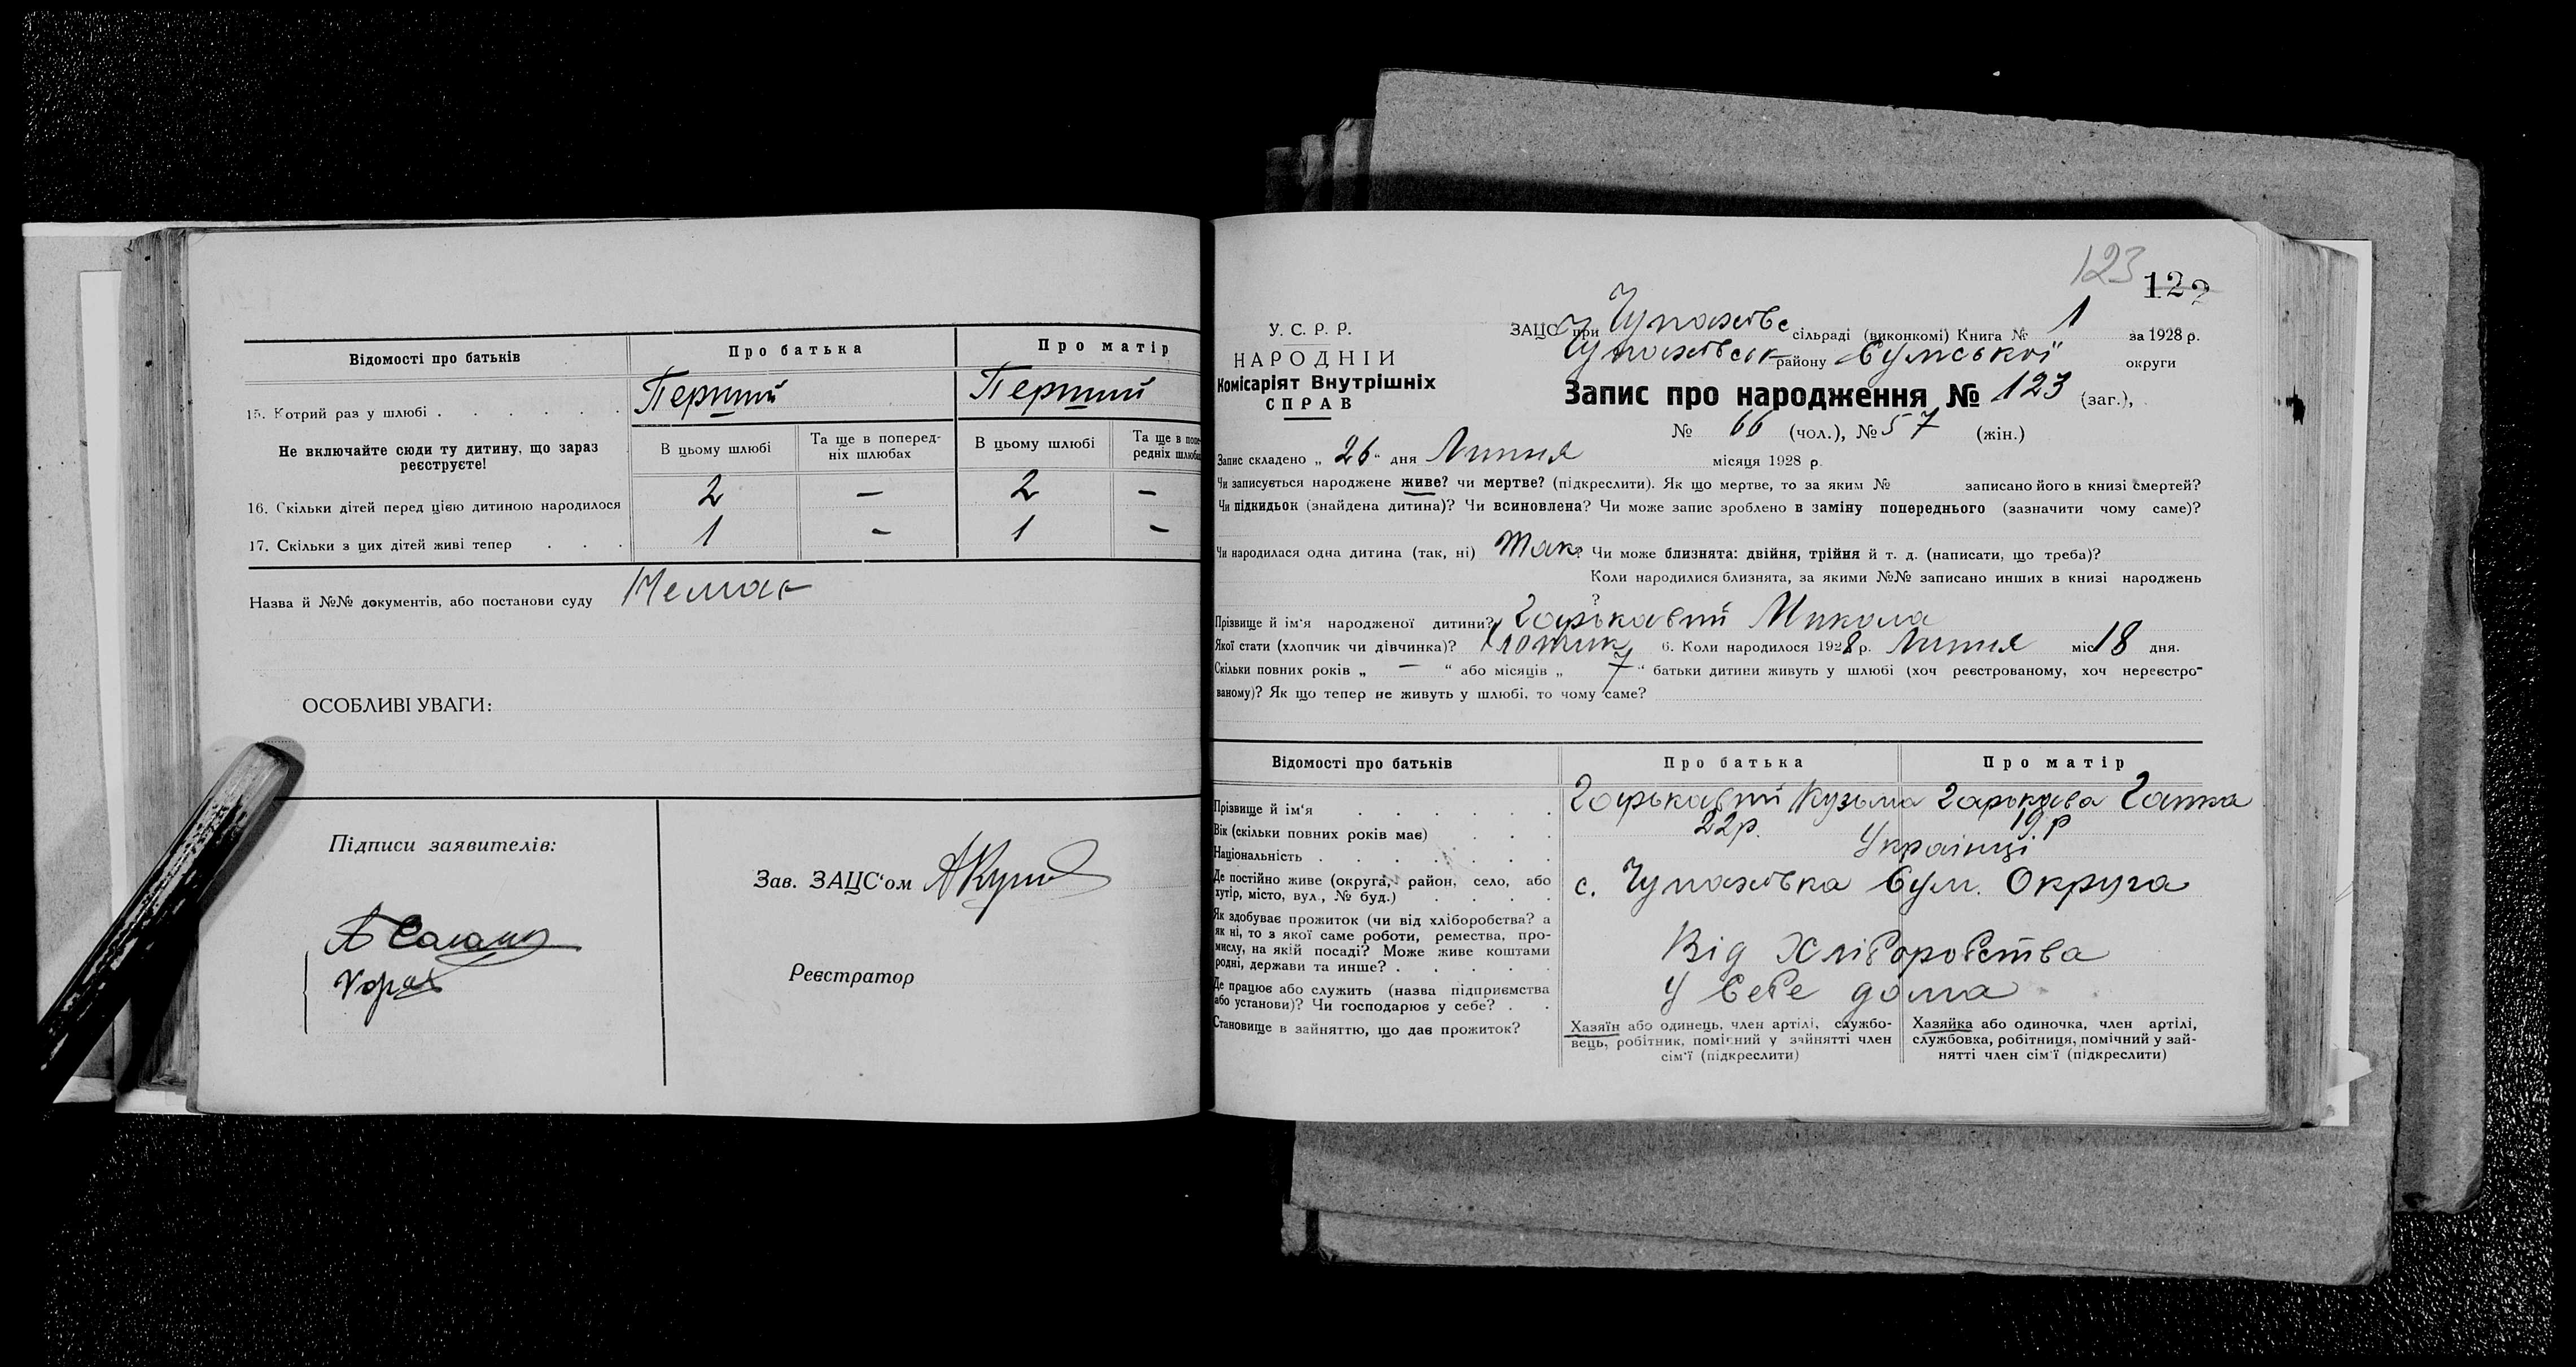 Відомості про батьків
Про батька
Про матір
15. Котрий раз у шлюбі
Перший
Перший
Не включайте сюди ту дитину, що зараз реєструєте!
В цьому шлюбі
Та ще в поперед-
ніх шлюбах
В цьому шлюбі
Та ще в попе-
редніх шлюбах
16. Скільки дітей перед цією дитиною народилося
2 — 2 —
17. Скільки з цих дітей живі тепер
1 — 1 —
Назва й №№ документів, або постанови суду
Немає
ОСОБЛИВІ УВАГИ:
Підписи заявителів:
Зав. ЗАЦС‘ом
Реєстратор
123
122
У. С. Р. Р.
НАРОДНІЙ
Комісаріят Внутрішніх
СПРАВ
ЗАЦС при Чупахівс сільраді (виконкомі) Книга № 1 за 1928 р.
Чупахівськ району Сумської округи
Запис про народження № 123 (заг.),
№ 66 (чол.), № 57 (жін.)
Запис складено „ 26 “ дня Липня місяця 1928 р.
Чи записується народжене живе? чи мертве? (підкреслити). Як що мертве, то за яким № записано його в книзі смертей?
Чи підкидьок (знайдена дитина)? Чи всиновлена? Чи може запис зроблено в заміну попереднього (зазначити чому саме)?
Чи народилася одна дитина (так, ні) Так? Чи може близнята: двійня, трійня й т. д. (написати, що треба)?
Коли народилися близнята, за якими №№ записано инших в книзі народжень
?
Прізвище й ім‘я народженої дитини? Горькавий Микола
Якої стати (хлопчик чи дівчинка)? Хлопчик 6. Коли народилося 1928 р. Липня міс 18 дня.
Скільки повних років „ — “ або місяців „ 7 “ батьки дитини живуть у шлюбі (хоч реєстрованому, хоч нереєстро-
ваному)? Як що тепер не живуть у шлюбі, то чому саме?
Відомості про батьків
Про батька
Про матір
Прізвище й ім‘я
Горькавий Кузьма Горькава Гапка
Вік (скільки повних років має)
22р. 19 р
Національність
Українці
Де постійно живе (округа, район, село, або
хутір, місто, вул., № буд.)
с. Чупахівка Сум. Округа
Як здобуває прожиток (чи від хліборобства? а
як ні, то з якої саме роботи, ремества, про-
мислу, на якій посаді? Може живе коштами
родні, держави та инше?
Від Хліборобства
Де працює або служить (назва підприємства
або установи)? Чи господарює у себе?
У себе дома
Становище в зайняттю, що дає прожиток?
Хазяїн або одинець, член артілі, службо-
вець, робітник, помічний у зайнятті член
сім‘ї (підкреслити)
Хазяйка або одиночка, член артілі,
службовка, робітниця, помічний у зай-
нятті член сім‘ї (підкреслити)